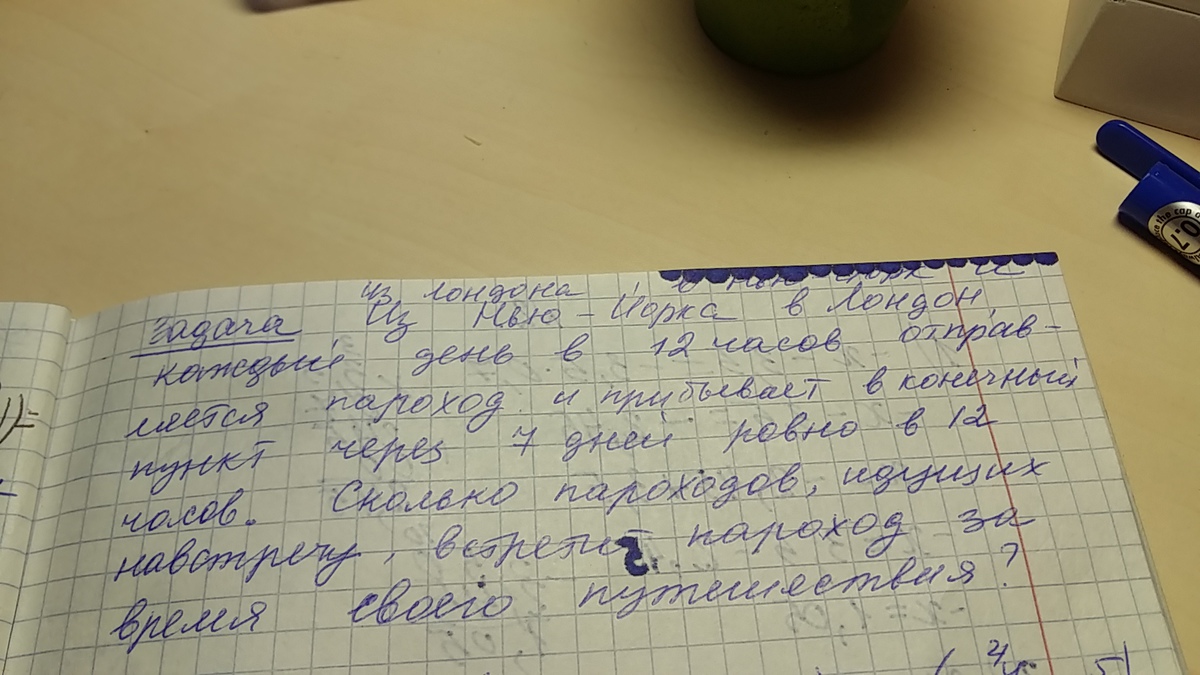 из лондона в нью-йорк и
Задача Из Нью-Йорка в Лондон
каждый день в 12 часов отправ-
ляется пароход и прибывает в конечный
пункт через 7 дней ровно в 12
часов. Сколько пароходов, идущих
навстречу, встретит пароход за
время своего путешествия?